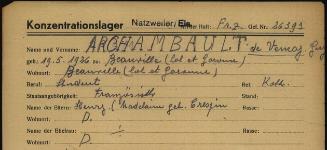 Konzentrationslager Natzweiler/ Art der Haft: Frz. Gef. Nr. 26391
Name und Vorname: ARCHAMBAULT de Vençay Guy
geb.: 19.5.1926 in Beauville (Lot et Garonne)
Wohnort: Beauville (Lot et Garonne)
Beruf: Student Rel. Kath.
Staatsangehörigkeit: Französisch Stand:
Name der Eltern: Henry / Madelaine geb. Crespin Rasse:
Wohnort: D.
Name der Ehefrau: ÷ Rasse:
Wohnort: D.